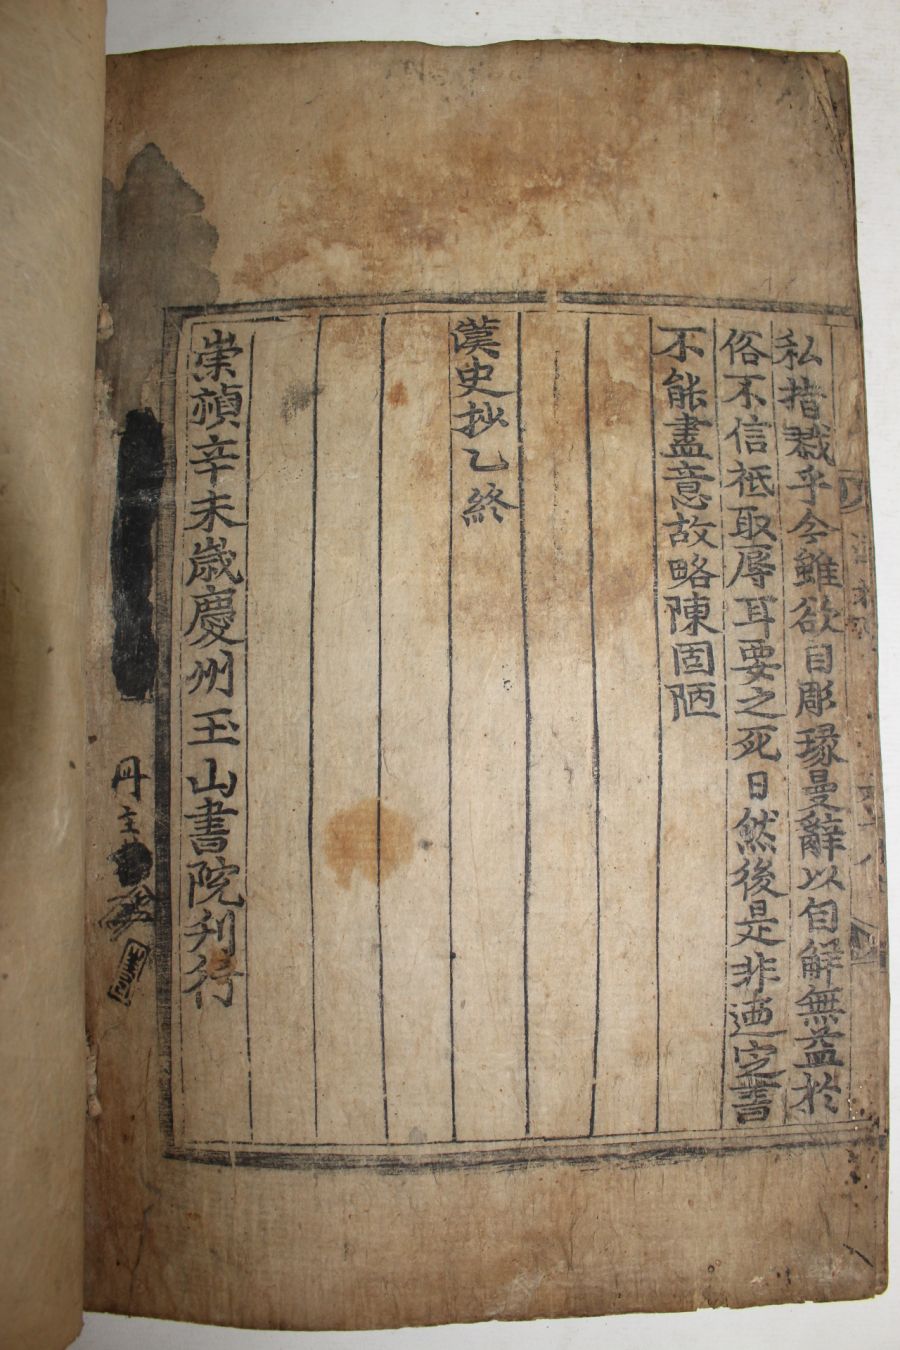 私指戮乎今雖欲自彫瑑曼辭以自解無益於
俗不信祗取辱耳要之死日然後是非迺定書
不能盡意故略陳固陋
漢史抄乙終
崇禎辛未歲慶州玉山書院刊行
冊主